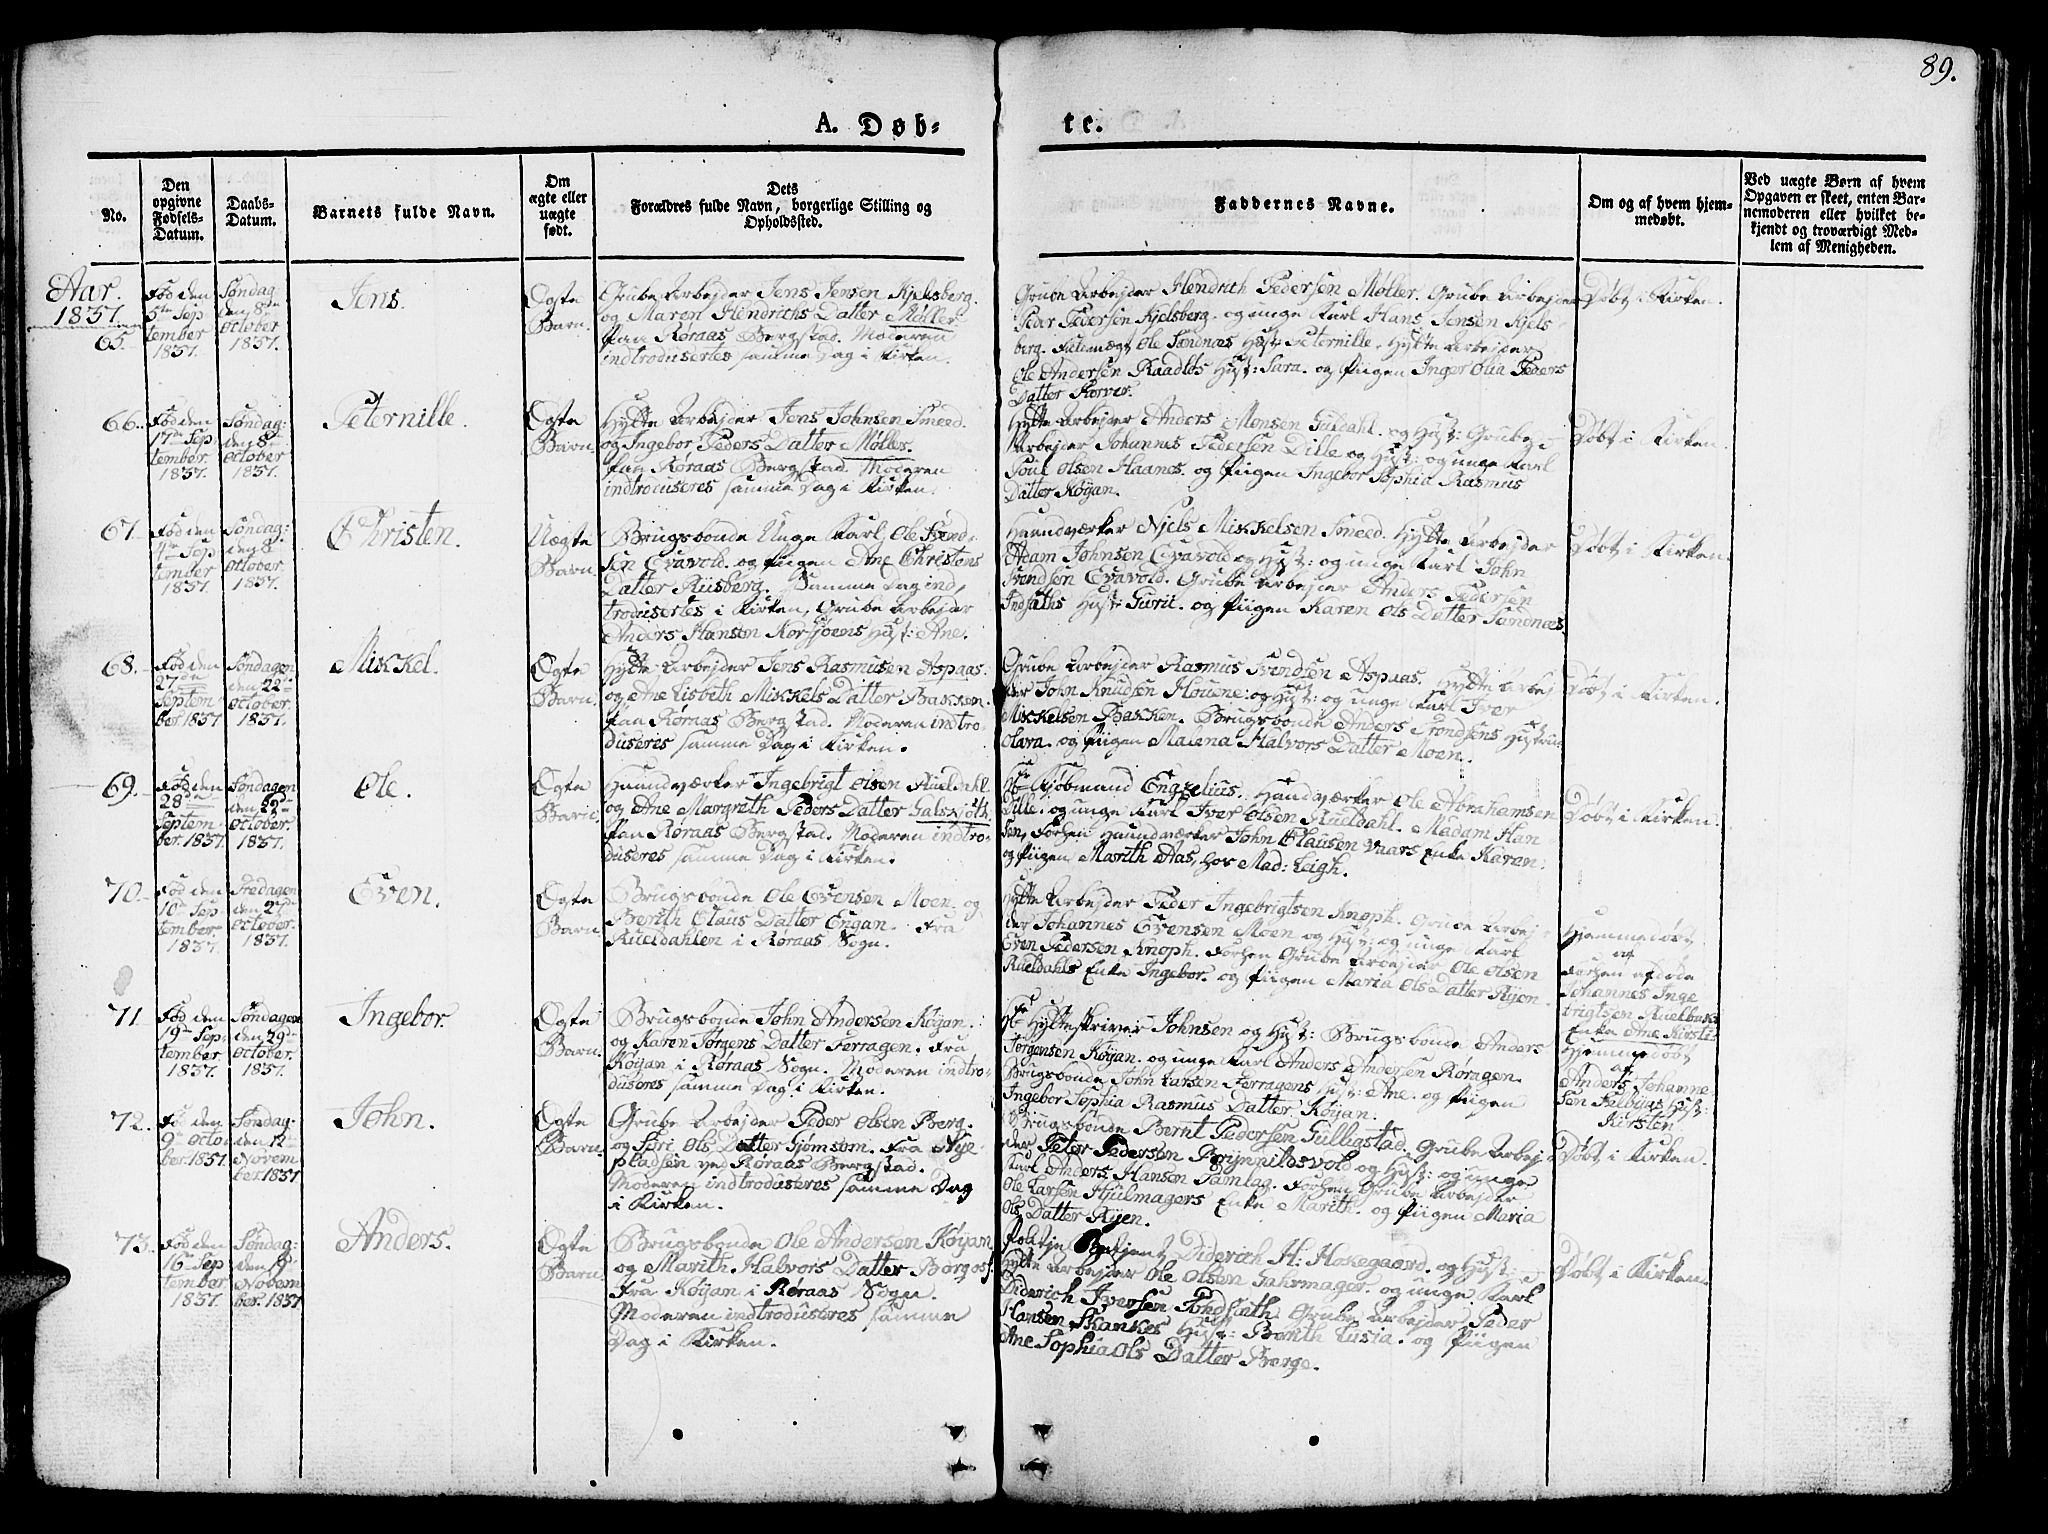 89.
A. Døb-
te.
No.
Den opgivne Fødsels-Datum.
Daabs-Datum.
Barnets fulde Navn.
Om ægte eller uægte født.
Dets
Forældres fulde Navn, borgerlige Stilling og
Opholdssted.
Faddernes Navne.
Om og af hvem hjem-
medøbt.
Ved uægte Børn af hvem
Opgaven er skeet, enten Bar-
nemoderen eller hvilket be-
kjendt og troværdigt Med-
lem af Menigheden.
Aar.
1837.
65.
Fød den
5te Sep
tember
1837.
Søndag
den 8de
October
1837.
Jens.
Ægte
Barn.
Grube Arbejder Jens Jensen Kjelsberg.
og Maren Hendrichs Datter Møller.
fra Røraas Bergstad. Moderen
indtroduseres samme Dag i Kirken.
Grube Arbejder Hendrich Pedersen Møller. Grube Arbejder
Peder Pedersen Kjelsberg. og unge Karl Hans Jensen Kjels
berg. Ole Sandnæs Hust: Peternille. Hytte Arbejder
Ole Andersen Raadlös Hust: Sara. og Piigen Inger Olia Peders
Datter Korver.
Døbt i Kirken.
66.
Fød den
17de Sep
tember
1837.
Søndag:
den 8de
October
1837.
Peternille.
Ægte
Barn.
Hytte Arbejder Jens Johnsen Smeed.
og Ingebor Peders Datter Møller.
fra Røraas Bergstad. Moderen
indtroduseres samme Dag i Kirken.
Hytte Arbejder Anders Monsen Guldahl. og Hust: Grube
Arbejder Johannes Pedersen Dille og Hust: og unge Karl
Poul Olsen Haanes. og Piigen Ingebor Sophia Rasmus
Datter Køyan.
Døbt i Kirken.
67.
Fød den
4de Sep
tember
1837.
Søndag:
den 8de
October
1837.
Christen.
Uægte
Barn.
Brugsbonde Unge Karl Ole Svend-
sen Evavold. og Piigen Ane Christens
Datter Riisberg. Samme Dag ind,
troduseres i Kirken, Grube Arbejder
Anders Hansen Korsjoens Hust: Ane.
Haandværker Njels Mikkelsen Smeed. Hytte Arbejder
Adam Johnsen Evavold og Hust: og unge Karl John
Svendsen Evavold. Grube Arbejder Anders Pedersen
Indsaths Hust: Gurit. og Piigen Karen Ols Datter Sandnæs.
Døbt i Kirken.
68.
Fød den
27de
Septem
ber. 1837
Søndagen
den 22de
October.
1837.
Mikkel.
Ægte
Barn.
Hytte Arbejder Jens Rasmusen Aspaas.
og Ane Lisbeth Mikkels Datter Bakken.
fra Røraas Bergstad. Moderen indtro
duseres samme Dag i Kirken.
Grube Arbejder Rasmus Svendsen Aspaas. Hytte Arbej
der John Knudsen Houene: og Hust: og unge Karl Iver
Mikkelsen Bakken. Brugsbonde Anders Trondsens Hustru
Olara. og Piigen Malena Halvors Datter Moen.
Døbt i Kirken.
69.
Fød den
28de
Septem
ber. 1837
Søndagen
den 22de
October.
1837.
Ole.
Ægte
Barn.
Haandværker Ingebrigt Olsen Rueldahl.
og Ane Margreth Peders Datter Galskjöth.
fra Røraas Bergstad. Moderen indtro-
duseres samme Dag i Kirken.
Hr Kjøbmand Engzelius. Handværker Ole Abrahamsen
Dille. og unge Karl Iver Olsen Rueldahl. Madam Han
sen, Forhen Haandværker John Clausen Vaars Enke Karen:
og Piigen Marith Aas, hos Mad: Leigh.
Døbt i Kirken.
70.
Fød den
10de Sep
tember
1837.
Fredagen
den 27de
October.
1837.
Even.
Ægte
Barn.
Brugsbonde Ole Evensen Moen. og
Berith Claus Datter Engan. Fra
Rueldahlen i Røraas Sogn.
Hytte Arbejder Peder Ingebrigtsen Knoph. Grube Arbej
der Johannes Evensen Moen og Hust: og unge Karl
Even Pedersen Knoph. Forhen Grube Arbejder Ole Olsen
Rueldahls Enke Ingebor. og Piigen Maria Ols Datter Ryen.
Hjemmedøbt
af
Forhen afdøde
Johannes Inge
brigtsen
Enke Ane Kirsti
71.
Fød den
19de Sep
tember.
1837.
Søndagen
den 29de
October.
1837.
Ingebor.
Ægte
Barn.
Brugsbonde John Andersen Køyan.
og Karen Jørgens Datter Feragen. Fra
Køyan i Røraas Sogn. Moderen indtro-
duseres samme Dag i Kirken.
Hr Hytteskriver Johnsen og Hust: Brugsbonde Anders
Jørgensen Køyan. og unge Karl Anders Andersen Røragen.
Brugsbonde John Larsen Feragens Hust: Ane. og Piigen
Ingebor Sophia Rasmus Datter Køyan.
Hjemmedøbt
af
Anders Johanne
sen Hust:
Kirsten
72.
Fød den
9de Octo
ber. 1837.
Søndag.
den 12te
Novem
ber. 1837
John.
Ægte
Barn.
Grube Arbejder Peder Olsen Berg.
og Siri Ols Datter Gjømsøm. Fra Nye-
pladsen ved Røraas Bergstad.
Moderen indtroduseres samme Dag
i Kirken.
Brugsbonde Bernt Pedersen Gulligstad. Grube Arbej
der Peter Pedersen Brynnildsvold og Hust: og unge
Karl Anders Hansen Tamlag. Forhen Grube Arbejder
Ole Larsen Hjulmagers Enke Marith. og Piigen Maria
Ols Datter Ryen.
Døbt i Kirken.
73.
Fød den
16de Sep
tember
1837.
Søndag:
den 19de
Novem
ber. 1837
Anders.
Ægte
Barn.
Brugsbonde Ole Andersen Køyan
og Marith. Halvors Datter Borgos.
Fra Køyan i Røraas Sogn.
Moderen indtroduseres samme
Dag i Kirken.
Politje Betjent Diderich H: Hokegaard. og Hust:
Hytte Arbejder Ole Olsen Fahrmager. og unge Karl
Diderich Iversen Grube Arbejder Peder
Hansen Skankes Hust: Berith Lusia. og Piigen
Ane Sophia Ols Datter Berge.
Døbt i Kirken.